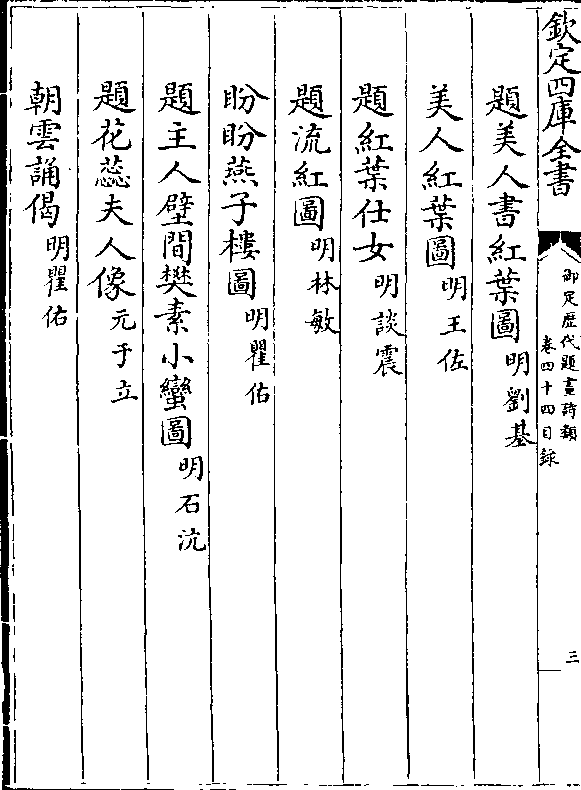 欽定四庫全書
御定歷代題畫詩類
卷四十四目録
三
題美人書紅葉圖明劉基
美人紅葉圖明王佐
題紅葉仕女明談震
題流紅圖明林敏
盼盼燕子樓圖明瞿佑
題主人壁間樊素小蠻圖明石沆
題花蕊夫人像元于立
朝雲誦偈明瞿佑